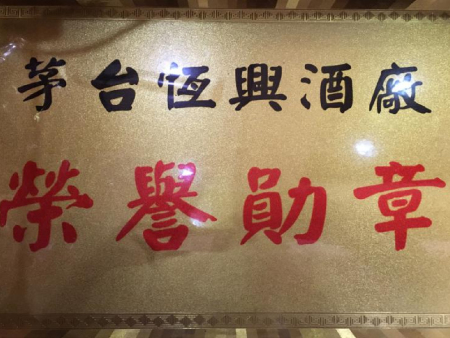 茅台恆興酒廠
榮譽勛章